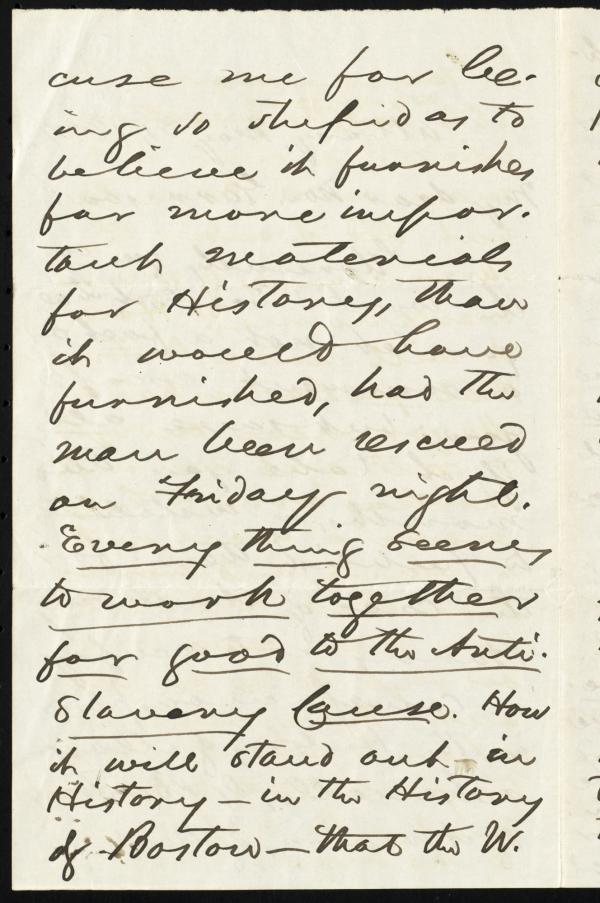 cuse me for be-
ing so stupid as to
believe it furnishes
far more impor-
tant materials
for History, than
it would have
furnished, had the
man been rescued
on Friday night.
Every thing seems
to work together
for good to the Anti-
Slavery Cause. How
it will stand out in
History - in the History
of Boston - that the W.